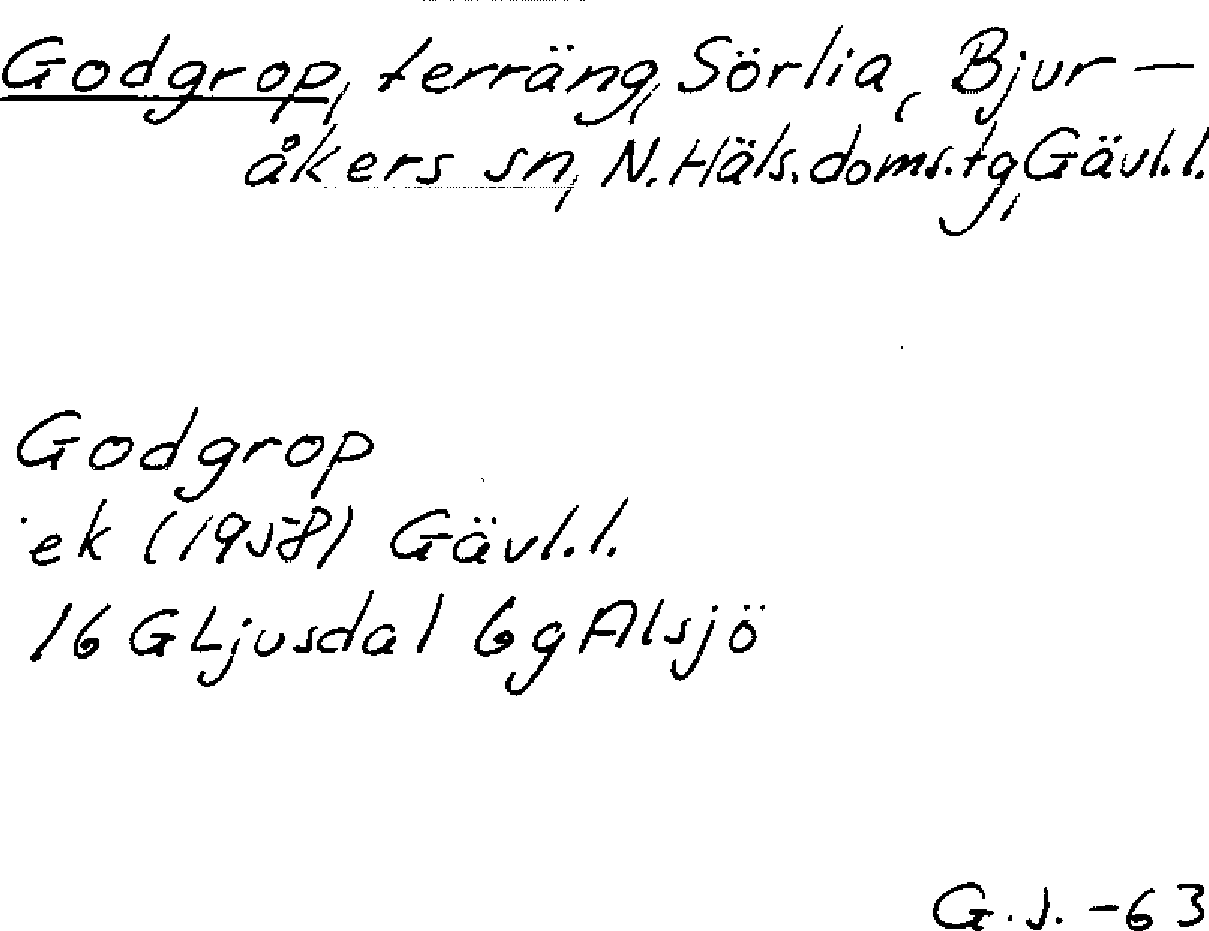 Godgrop, terräng, Sörlia, Bjur-
åkers sn, N. Häls. doms. tg, Gävl. l.
Godgrop
ek (1958) Gävl. l.
16 G Ljusdal 6g Alsjö
G. J. -63